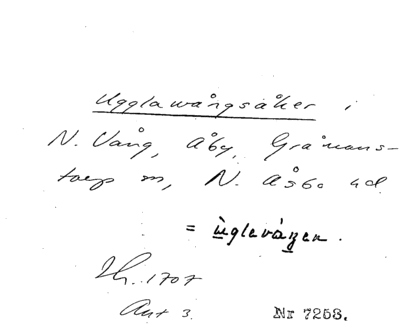 Ugglawångsåker i
N. Vång, Åby, Gråmans-
torp sn, N. Åsbo hd
= ùglevą́ŋen.
Lh. 1707
Ant 3.
Nr 7253.